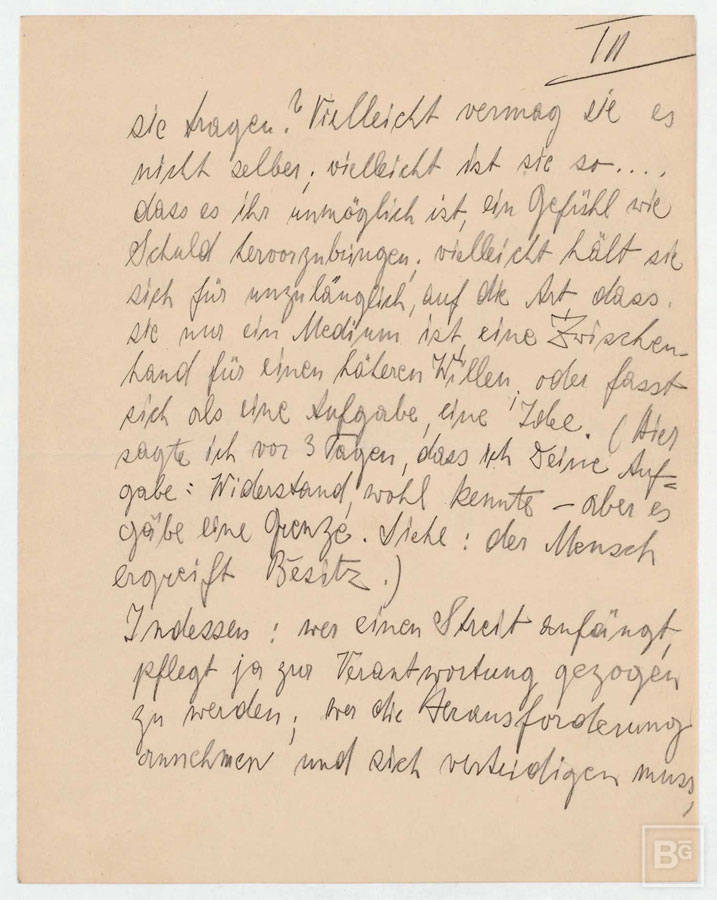 III
sie tragen? Vielleicht vermag sie es
nicht selber, vielleicht ist sie so....,
dass es ihr unmöglich ist, ein Gefühl wie
Schuld hervorzubringen, vielleicht hält sie
sich für unzulänglich, auf die Art dass
sie nur ein Medium ist, eine Zwischen-
hand für einen höheren Willen, oder fasst
sich als eine Aufgabe, eine Idee. (Hier
sagte ich vor 3 Tagen, dass ich Deine Auf=
gabe: Widerstand, wohl kennte – aber es
gäbe eine Grenze. Siehe: der Mensch
ergreift Besitz.)
Indessen: wer einen Streit anfängt,
pflegt ja zur Verantwortung gezogen
zu werden; wer die Herausforderung
annehmen und sich verteidigen muss,
BG